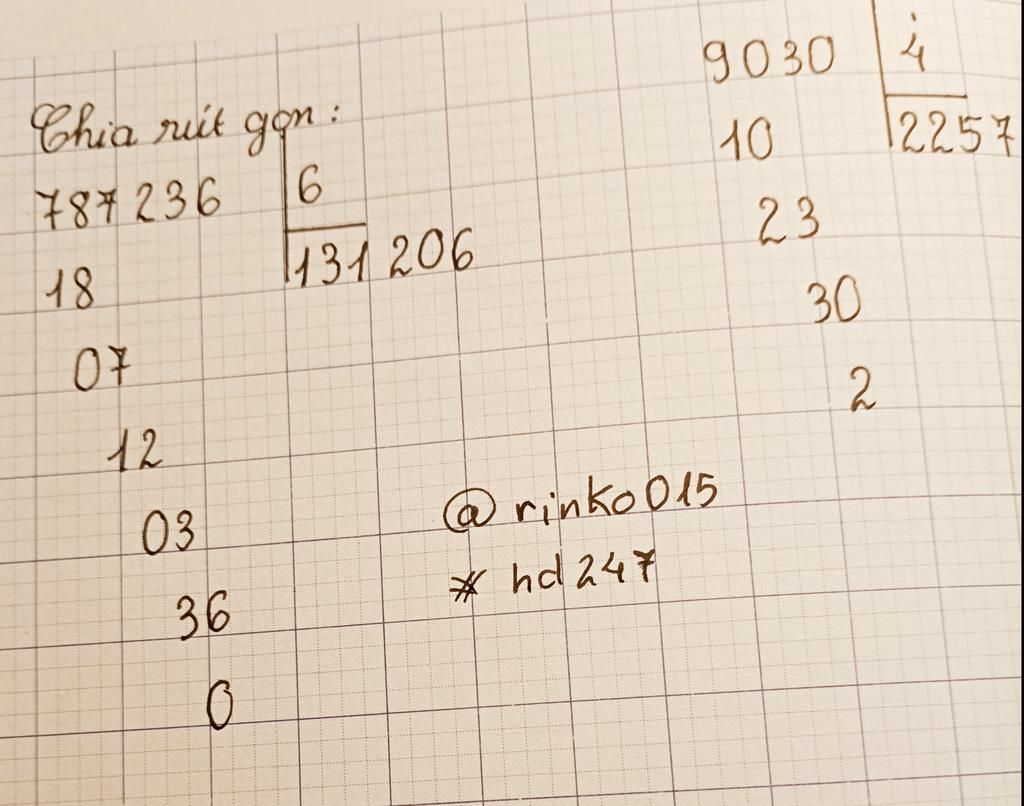 Chia rút gọn :
787236 6
18 131206
07
12
03
36
0
9030 4
10 2257
23
30
2
@rinko015
* hd247